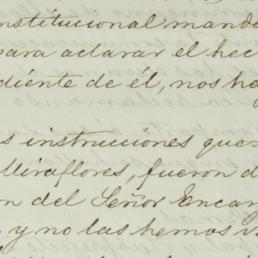 nstitucional mand
para aclarar el hec
diente de él, nos ha
s instrucciones que
Miraflores, fueron d
n del Señor Encar
, y no las hemos v